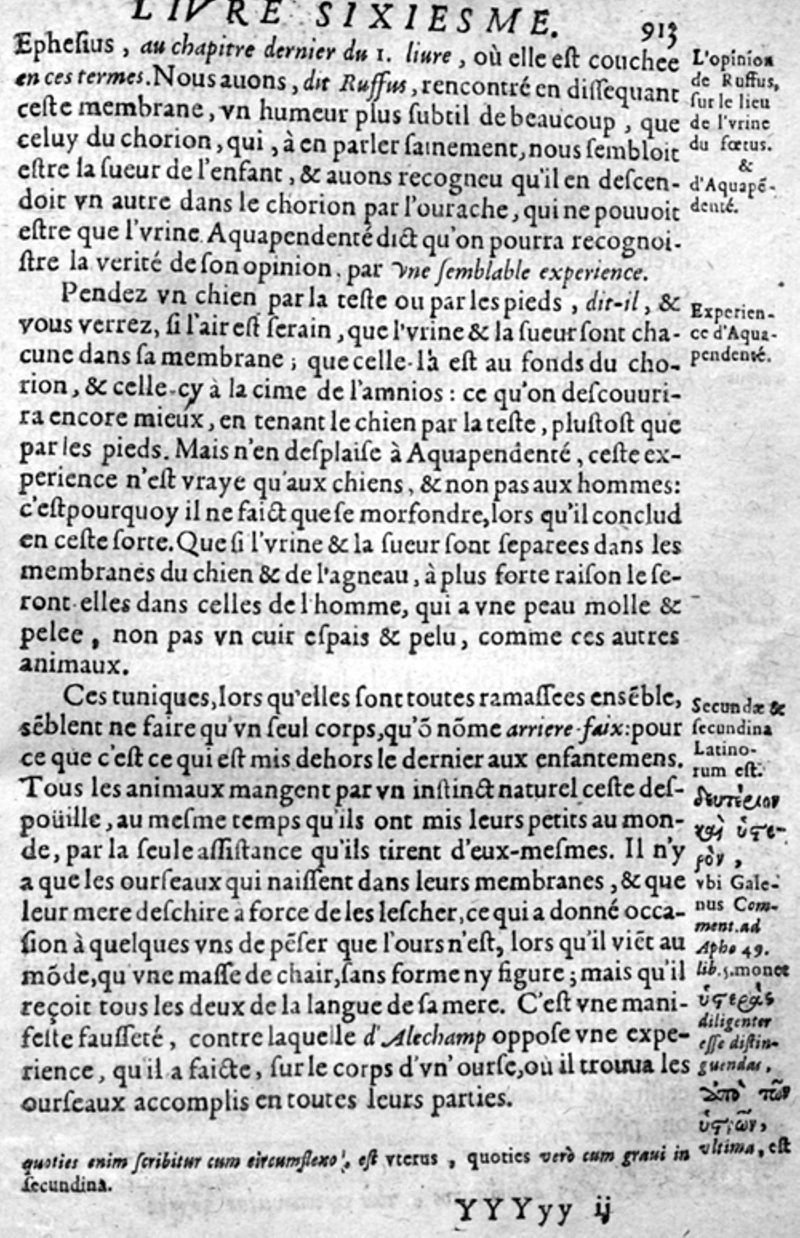 LIVRE SIXIESME. 913
Ephesius, au chapitre dernier du 1. liure, où elle est couchee
en ces termes. Nous auons, dit Ruffus, rencontré en dissequant
ceste membrane, vn humeur plus subtil de beaucoup, que
celuy du chorion, qui, à en parler sainement, nous sembloit
estre la sueur de l'enfant, & auons recogneu qu'il en descen-
doit vn autre dans le chorion par l'ourache, qui ne pouuoit
estre que l'vrine. Aquapendenté dict qu'on pourra recognoi-
stre la verité de son opinion, par vne semblable experience.
L'opinion
de Ruffus,
sur le lieu
de l'vrine
du fœtus.
&
d'Aquapē-
denté.
Pendez vn chien par la teste ou par les pieds, dit-il, &
vous verrez, si l'air est serain, que l'vrine & la sueur sont cha-
cune dans sa membrane; que celle-là est au fonds du cho-
rion, & celle-cy à la cime de l'amnios: ce qu'on descouuri-
ra encore mieux, en tenant le chien par la teste, plustost que
par les pieds. Mais n'en desplaise à Aquapendenté, ceste ex-
perience n'est vraye qu'aux chiens, & non pas aux hommes:
c'est pourquoy il ne faict que se morfondre, lors qu'il conclud
en ceste sorte. Que si l'vrine & la sueur sont separees dans les
membranes du chien & de l'agneau, à plus forte raison le se-
ront-elles dans celles de l'homme, qui a vne peau molle &
pelee, non pas vn cuir espais & pelu, comme ces autres
animaux.
Experien-
ce d'Aqua-
pendenté.
Ces tuniques, lors qu'elles sont toutes ramassees ensēble,
sēblent ne faire qu'vn seul corps, qu'ō nōme arriere-faix: pour
ce que c'est ce qui est mis dehors le dernier aux enfantemens.
Tous les animaux mangent par vn instinct naturel ceste des-
poüille, au mesme temps qu'ils ont mis leurs petits au mon-
de, par la seule assistance qu'ils tirent d'eux-mesmes. Il n'y
a que les ourseaux qui naissent dans leurs membranes, & que
leur mere deschire à force de les lescher, ce qui a donné occa-
sion à quelques vns de pēser que l'ours n'est, lors qu'il viēt au
mōde, qu'vne masse de chair, sans forme ny figure; mais qu'il
reçoit tous les deux de la langue de sa mere. C'est vne mani-
feste fausseté, contre laquelle d'Alechamp oppose vne expe-
rience, qu'il a faicte, sur le corps d'vn' ourse, où il trouua les
ourseaux accomplis en toutes leurs parties.
Secundæ &
secundina
Latino-
rum est.
δευτέριον
καὶ ὕστε-
ρον,
vbi Gale-
nus Com-
ment. ad
Apho 49.
lib. 5. monet
ὑστερὰς
diligenter
esse distin-
guendas,
ἀπὸ τῶν
vltima, est
quoties enim scribitur cum circumflexo, est vterus, quoties verò cum graui in
secundina.
YYYyy ij